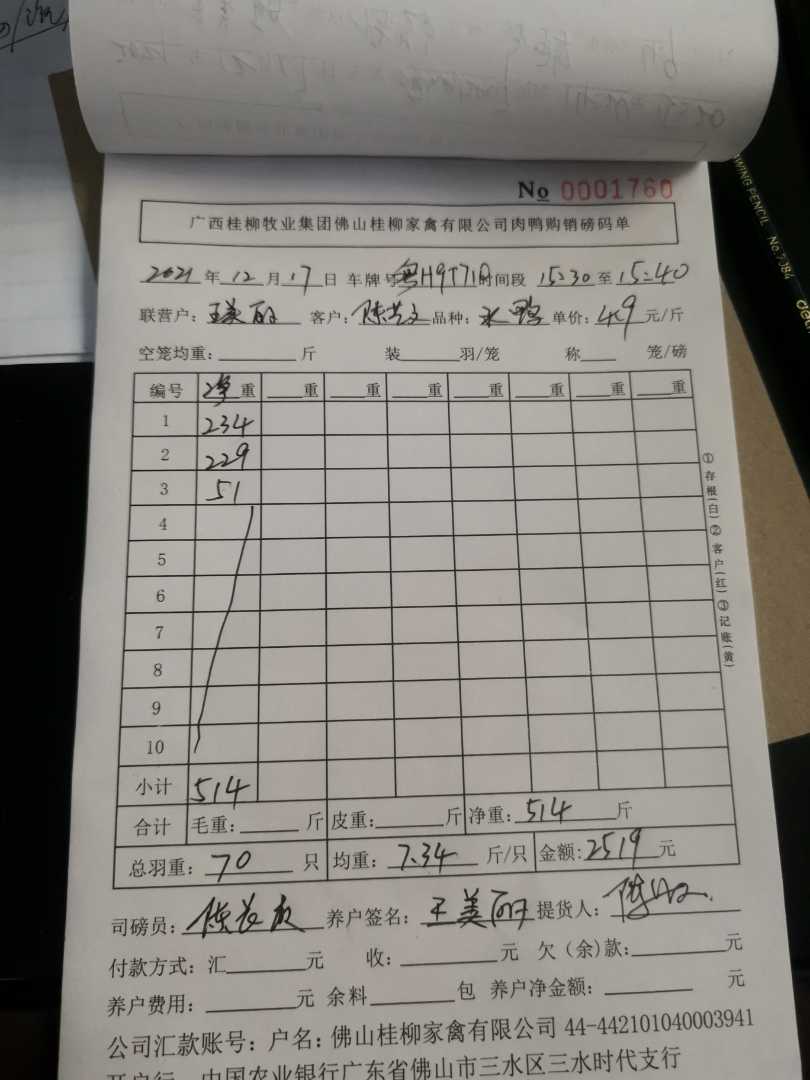 No 0001760
广西桂柳牧业集团佛山桂柳家禽有限公司肉鸭购销磅码单
2021年12月17日 车牌号粤H9T71Q时间段 15:30至15:40
联营户:王美丽 客户: 品种:水鸭 单价:4.9元/斤
空笼均重: 斤 装 羽/笼 称 笼/磅
编号 净重 重 重 重 重 重 重 重
1 234
2 229
3 51
4
5
6
7
8
9
10
小计 514
合计 毛重: 斤 皮重: 斤 净重:514斤
总羽重:70只 均重:7.34斤/只 金额:2519元
司磅员: 养户签名:王美丽 提货人:
付款方式:汇 元 收: 元 欠(余)款: 元
养户费用: 元 余料 包 养户净金额: 元
公司汇款账号:户名:佛山桂柳家禽有限公司 44-442101040003941
开户行 中国农业银行广东省佛山市三水区三水时代支行
①存根(白)②客户(红)③记账(黄)
DRAWING PENCIL No.7184
deli